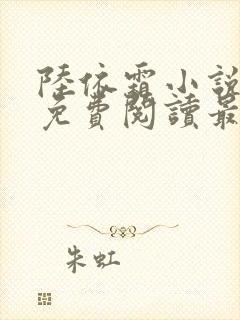 陸依霜小說
免費閱讀最
朱虹